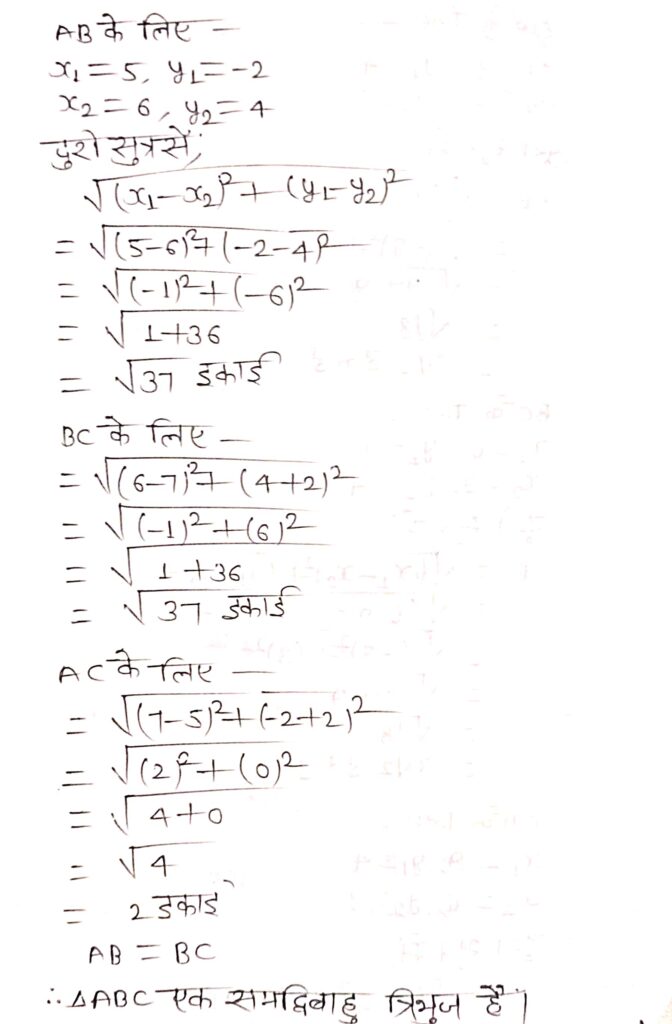 AB के लिए —
x₁ = 5, y₁ = -2
x₂ = 6, y₂ = 4
दुरी सुत्र सें,
√(x₁-x₂)² + (y₁-y₂)²
= √(5-6)² + (-2-4)²
= √(-1)² + (-6)²
= √1+36
= √37 इकाई
BC के लिए —
= √(6-7)² + (4+2)²
= √(-1)² + (6)²
= √1+36
= √37 इकाई
AC के लिए —
= √(7-5)² + (-2+2)²
= √(2)² + (0)²
= √4+0
= √4
= 2 इकाई
AB = BC
∴ △ABC एक समद्विबाहु त्रिभुज है।